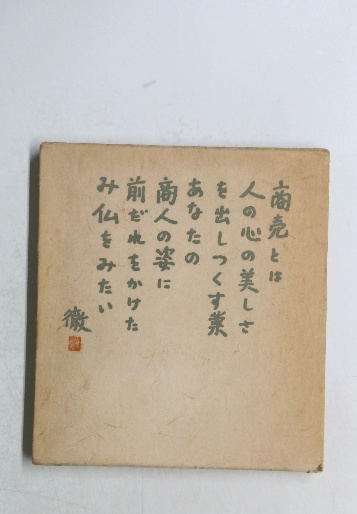 商売とは
人の心の美しさ
を出しつくす業
あなたの
商人の姿に
前だれをかけた
み仏をみたい
徹